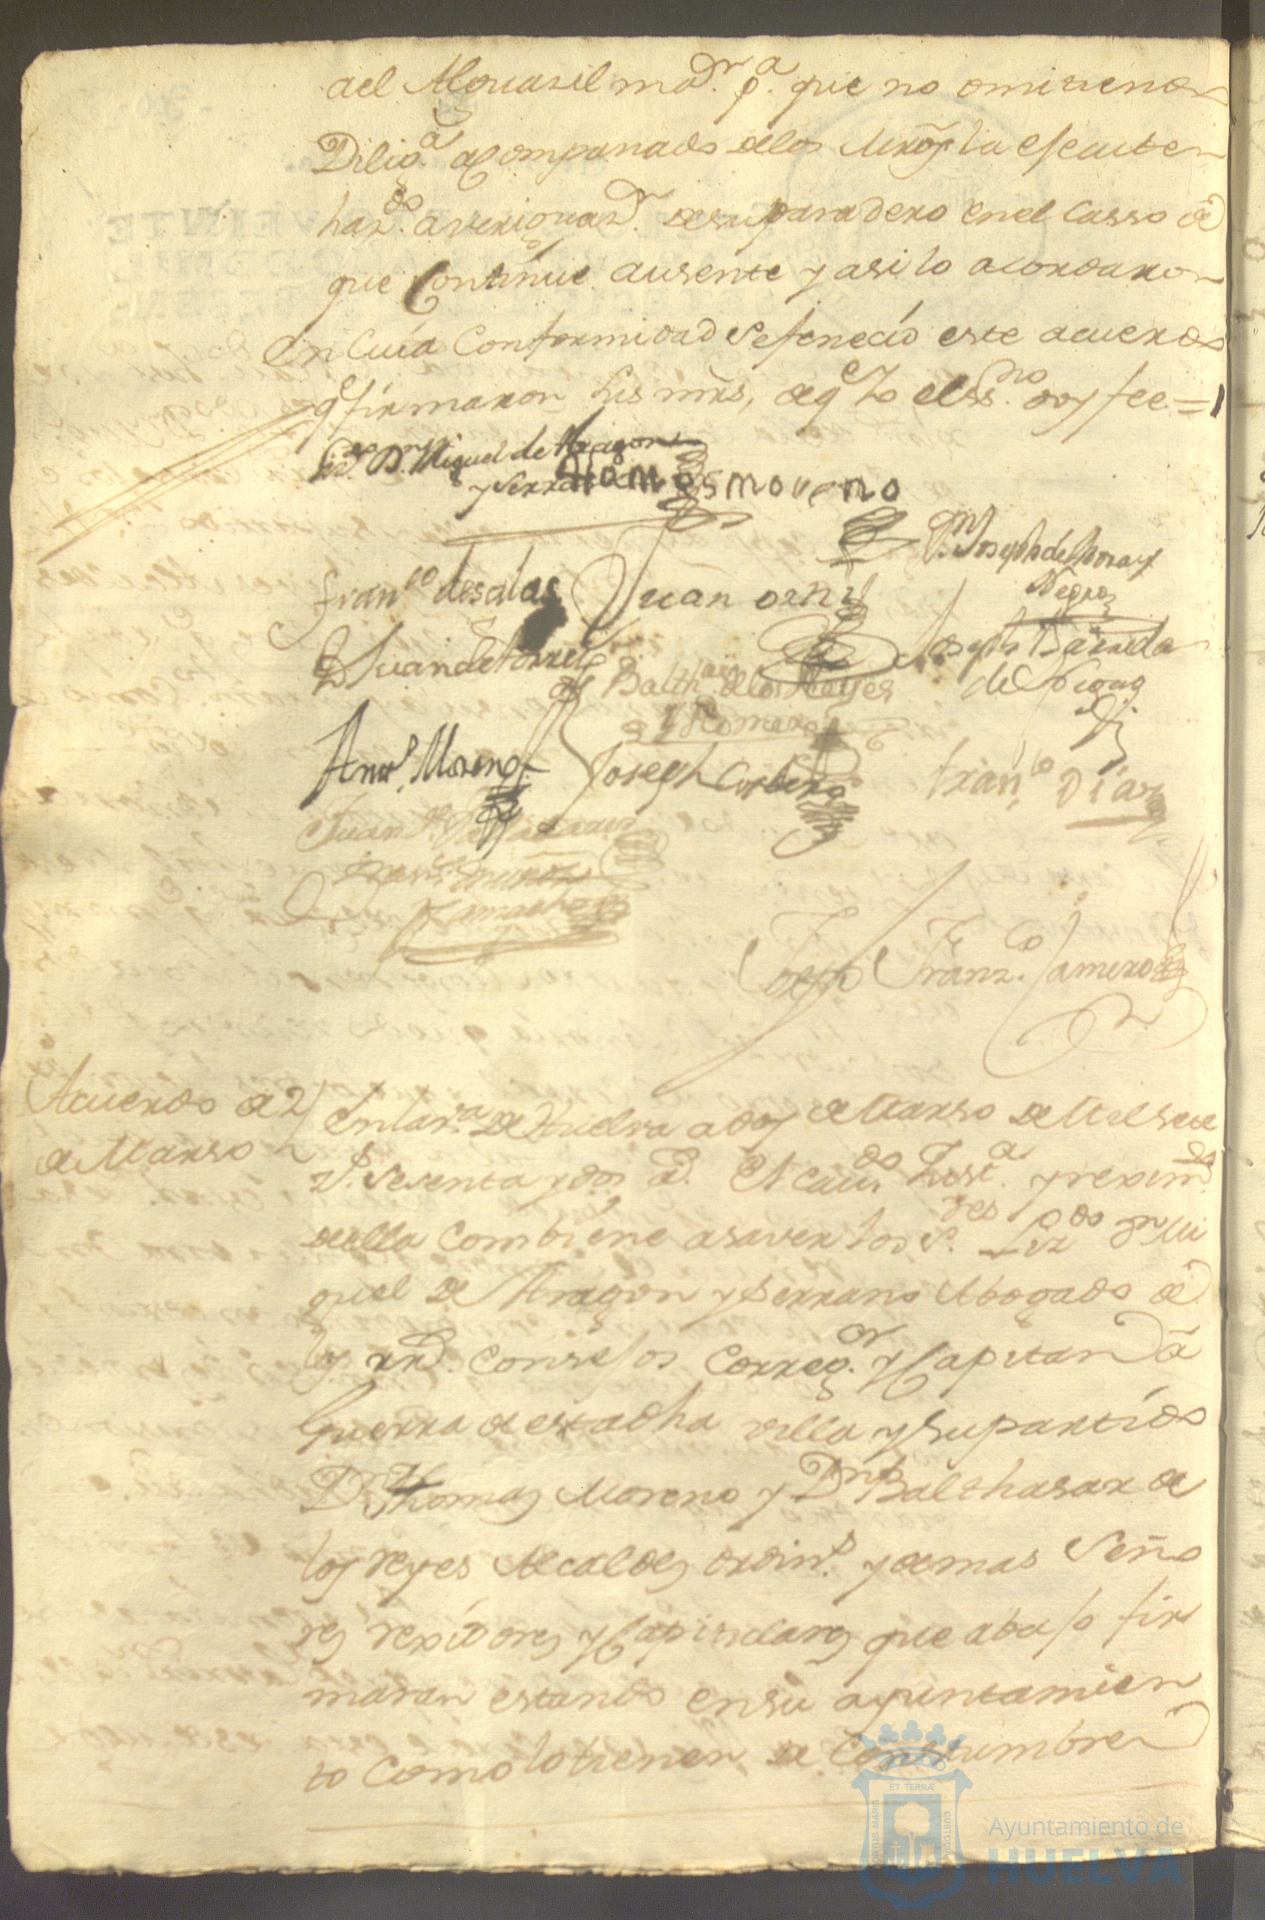 del Alguasil mōr. pa. que no omitiendo
Diliga. acompanado delos Mrōs la executen
hazdo. averiguazn. de su paradero en el casso de
que continue ausente y asi lo acordaron
En cuia conformidad se fenecio este acuerdo
q firmaron sus mrds, de q Yo el ssno. doy fee =
Lizdo. Dn. Miguel de Aragon
y Serrano
thomas moreno
Dn. Joseph de Mora y
Negro
franco de salas
Juan orni
D Juan de torres
Balthar. de los Reyes
y Romero
Joseph Barreda
de
Anto. Moreno
Joseph Corbera
franco Diaz
Juan
munoz
Camacho
Joseph Franzco. Jamero
Acuerdo de 2
de Marzo
En la va. de Huelva a dos de Marzo de Mil sete
zs. sesenta y dos as. El cavdo. Justa. y reximdo.
de ella combiene a saver los sres. Lizdo Dn Mi
guel de Aragon y Serrano Abogado de
los rrs. consejos corregor. y Capitan a
Guerra de esta dha villa y su partido
Dn Thomas Moreno y Dn Balthasar de
los reyes Alcaldes ordins. y demas Seño
res rexidores y Capitulares que abajo fir
maran estando en su ayuntamien
to como lo tienen de Costumbre
ET TERRÆ
PORTUS MARIS
CUSTODIA
Ayuntamiento de
HUELVA